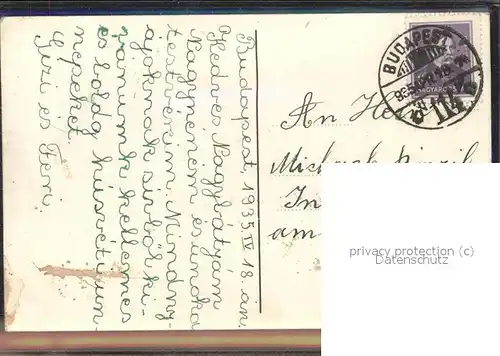 Budapest, 1935 IV. 18. án.
Kedves Nagybátyám
Nagynéném és unoka
testvéreim Mindny-
ájoknak szivből ki-
vánunk kellemes
és boldog húsvéti ün-
nepeket
Gizi és Feri.
BUDAPEST
MAGYARORSZ
An Herr
In
am
privacy protection (c)
Datenschutz